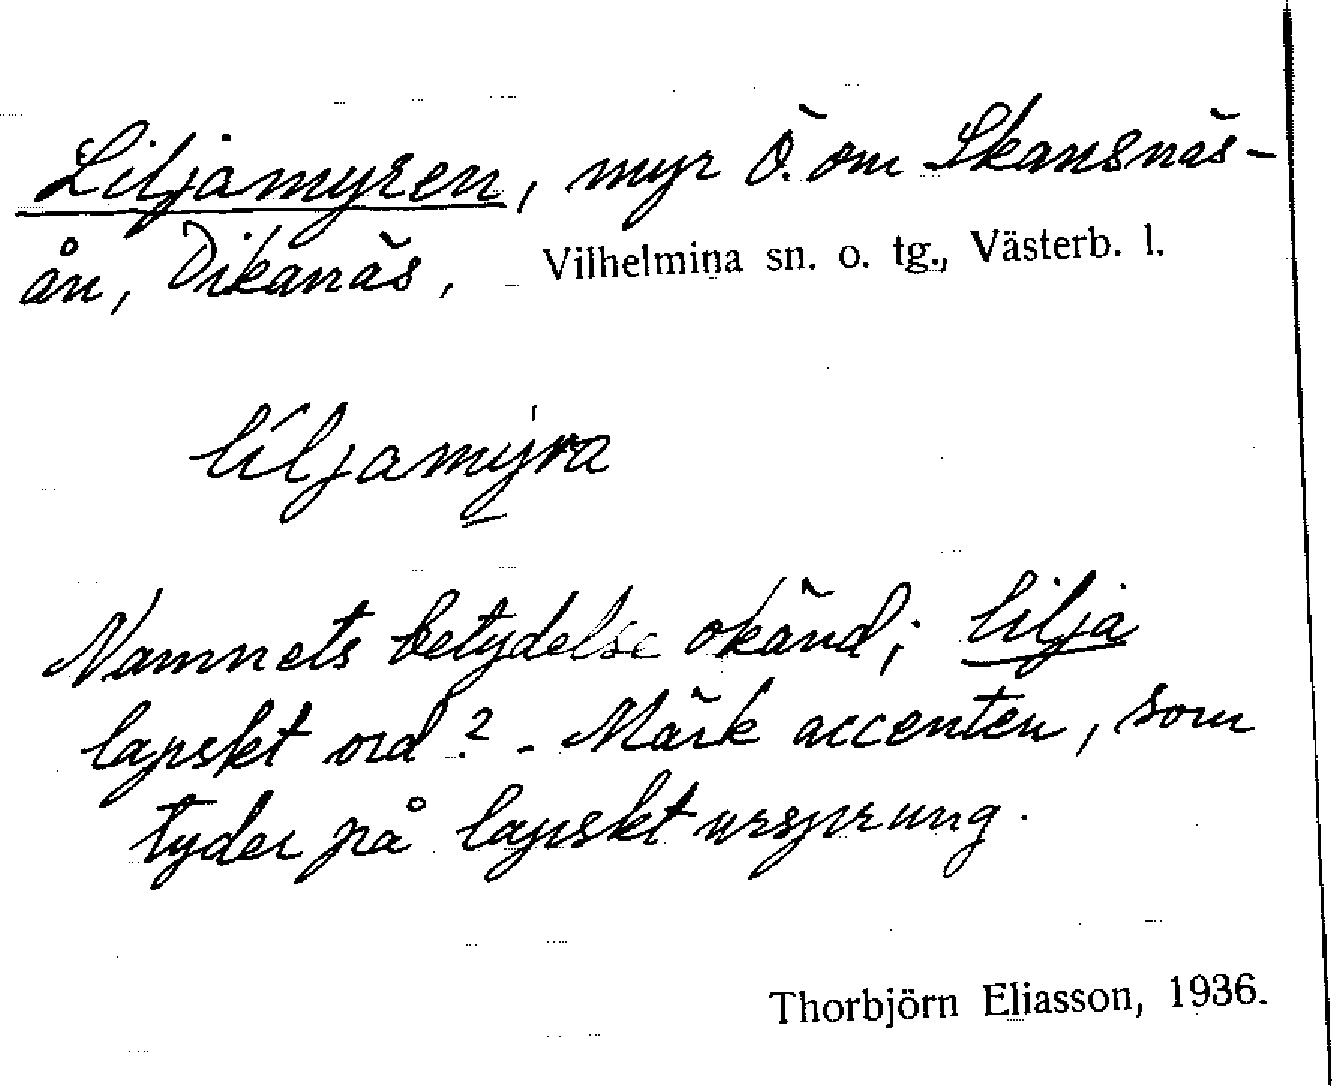 Liljamyren, myr Ö. om Skansnäs-
ån, Dikanäs, Vilhelmina sn. o. tg., Västerb. l.
líljamỳra
Namnets betydelse okänd; lilja
lapskt ord? - Märk accenten, som
tyder på lapskt ursprung.
Thorbjörn Eliasson, 1936.